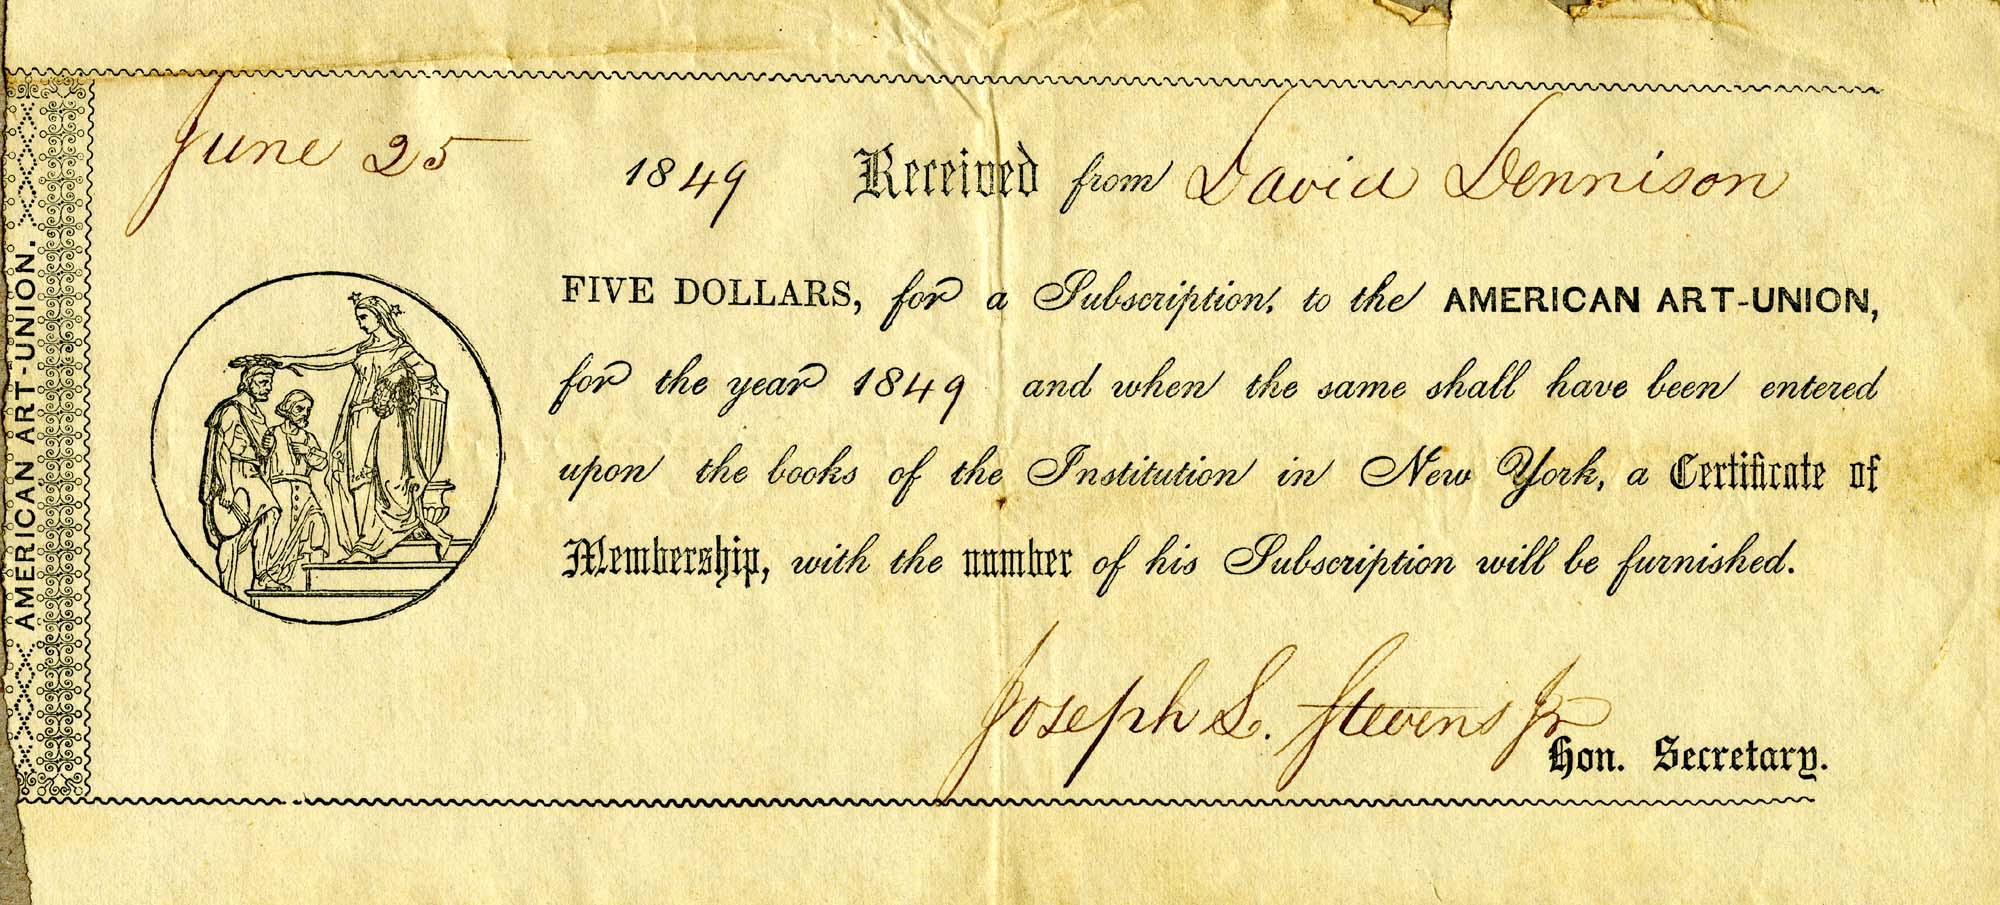 AMERICAN ART-UNION.
June 25 1849 Received from David Dennison
FIVE DOLLARS, for a Subscription, to the AMERICAN ART-UNION,
for the year 1849 and when the same shall have been entered
upon the books of the Institution in New York, a Certificate of
Membership, with the number of his Subscription will be furnished.
Joseph L. Stevens Jr
Hon. Secretary.